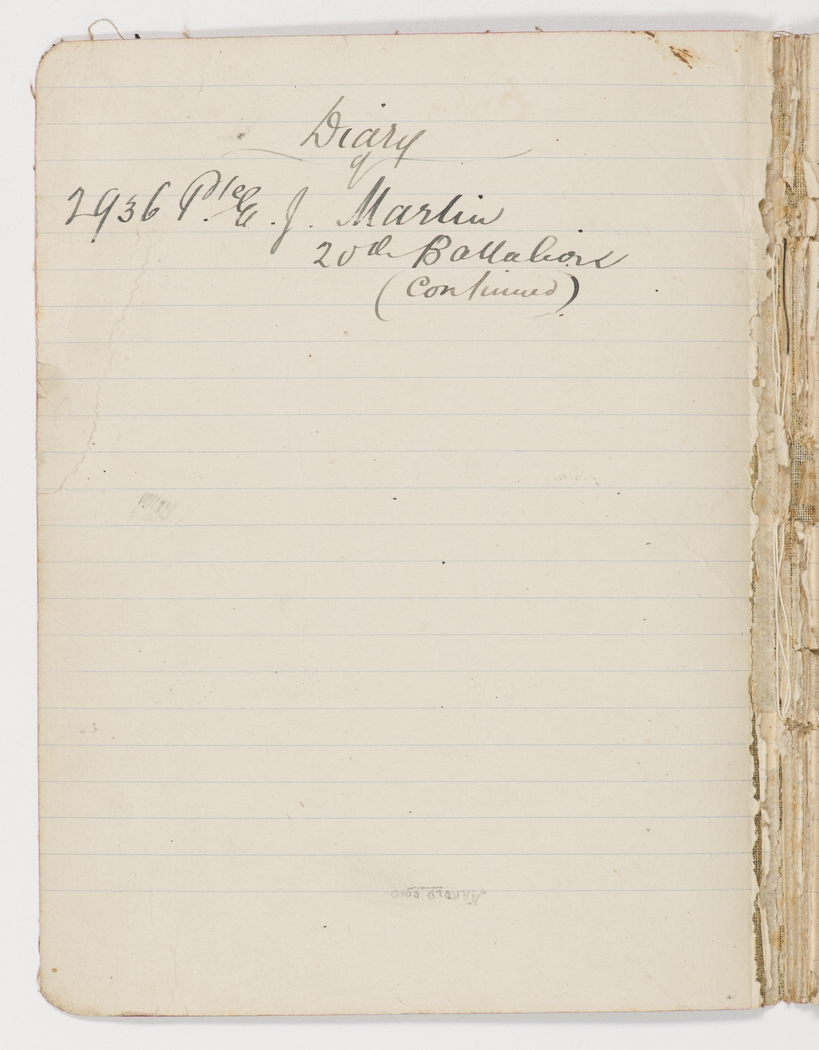 Diary
of
2936 Pte E. J. Martin
20th Battalion
(Continued)